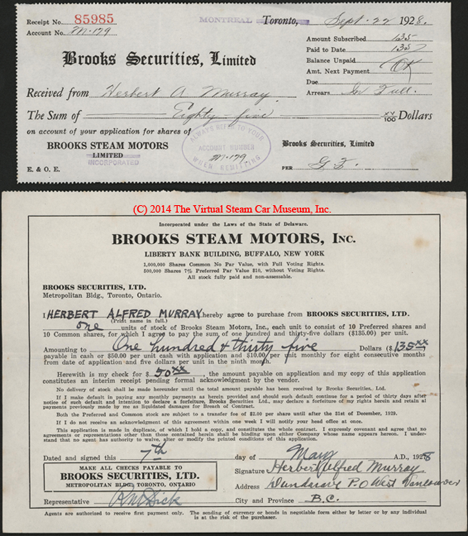 Receipt No. 85985
MONTREAL Toronto, Sept. 22 1928.
Account No. M-179
Amount Subscribed 135
Paid to Date 135
Balance Unpaid
Amt. Next Payment
Due
Arrears In Full.
Brooks Securities, Limited
Received from Herbert A. Murray.
The Sum of Eighty five xx/100 Dollars
on account of your application for shares of
BROOKS STEAM MOTORS
LIMITED
INCORPORATED
ALWAYS REFER YOUR
ACCOUNT NUMBER
M-179
WHEN REMITTING
Brooks Securities, Limited
E. & O. E.
PER
(C) 2014 The Virtual Steam Car Museum, Inc.
Incorporated under the Laws of the State of Delaware.
BROOKS STEAM MOTORS, INC.
LIBERTY BANK BUILDING, BUFFALO, NEW YORK
1,000,000 Shares Common No Par Value, with Full Voting Rights.
500,000 Shares 7% Preferred Par Value $10, without Voting Rights.
All stock fully paid and non-assessable.
BROOKS SECURITIES, LTD.
Metropolitan Bldg., Toronto, Ontario.
I HERBERT ALFRED MURRAY hereby agree to purchase from BROOKS SECURITIES, LTD.
(Print name in full.)
one units of stock of Brooks Steam Motors, Inc., each unit to consist of 10 Preferred shares and
10 Common shares, for which I agree to pay the sum of one hundred and thirty-five dollars ($135.00) per unit.
Amounting to One hundred & thirty five Dollars ($135xx)
payable in cash or $50.00 per unit cash with application and $10.00 per unit monthly for eight consecutive months
from date of application and five dollars per unit in the ninth month.
Herewith is my check for $ 50xx, the amount payable on application and my copy of this application
constitutes an interim receipt pending formal acknowledgment by the vendor.
No delivery of stock shall be made hereunder until the total amount payable has been received by Brooks Securities, Ltd.
If I make default in paying any monthly payments as herein provided and should such default continue for a period of thirty days after
notice of such default and intention to declare a forfeiture, Brooks Securities Ltd., may declare a forfeiture of my rights herein and retain all
payments previously made by me as liquidated damages for Breach of Contract.
Both the Preferred and Common stock are subject to a transfer fee of $2.00 per share until after the 31st of December, 1929.
If I do not receive an acknowledgment of this agreement within one week I will notify your head office at once.
This application is made in duplicate, of which I hold a copy, and constitutes the whole contract. I expressly covenant and agree that no
agreements or representations other than those contained herein shall be binding upon either Company whose names appear herein. I understand
that no agent has authority to waive, alter or modify the printed conditions of this application.
Dated and signed this 7th day of May A.D., 1928
MAKE ALL CHECKS PAYABLE TO
BROOKS SECURITIES, LTD.
METROPOLITAN BLDG., TORONTO, ONTARIO
Signature Herbert Alfred Murray
Address Dundarave P.O West Vancouver
Representative
City and Province B.C.
Agents are authorized to receive first payment only. The sending of currency or bonds in negotiable form either by letter or by any individual
is at the risk of the purchaser.